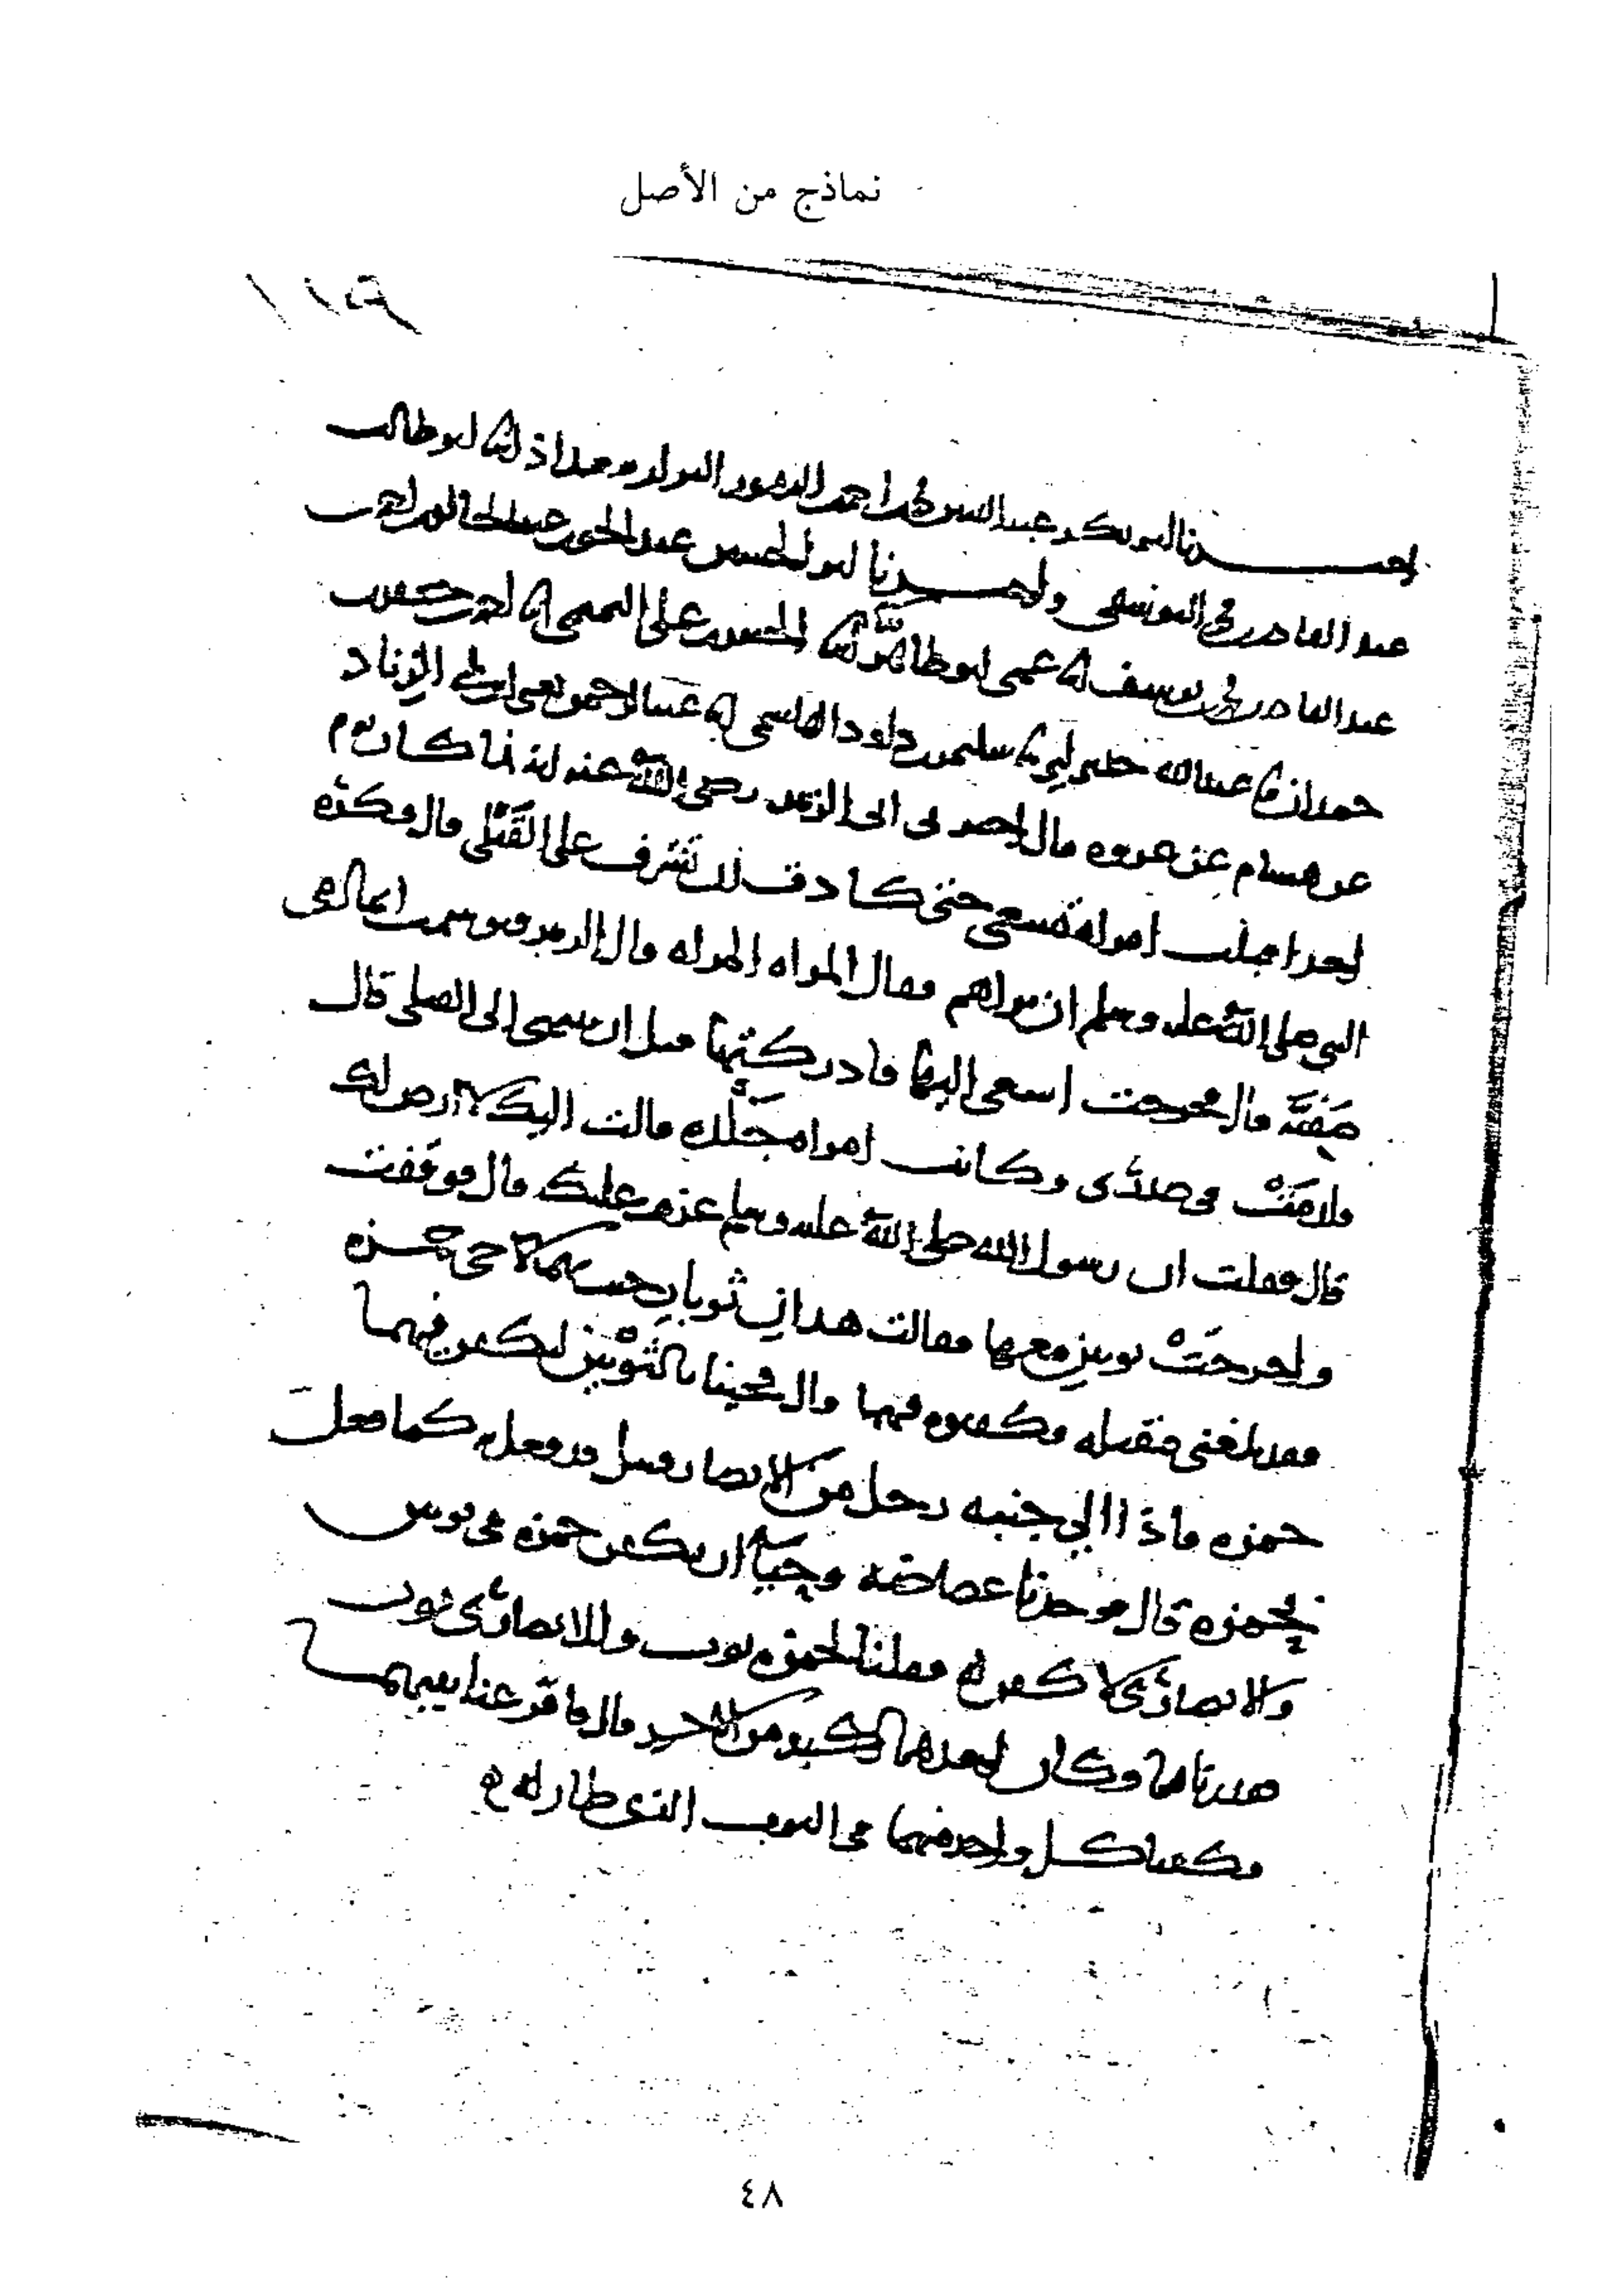 نماذج من الأصل
احبرنا ابو بكر عبد الله بن محمد بن احمد بن النقور البزاز ببغداذ انا ابو طالب
عبد القادر بن محمد اليوسفي واحبرنا ابو الحسين عبد الحق بن عبد الخالق بن احمد بن
عبد القادر بن محمد بن يوسف انا عمي ابو طاهر قالا انا الحسن بن علي التميمي انا احمد بن جعفر بن
حمدان نا عبد الله حدثني ابي نا سليمن بن داود الهاشمي انا عبد الرحمن يعني ابن ابي الزناد
عن هشام عن عروه قال اخبرني ابي الزبير رضي الله عنه انه لما كان يوم
احد اقبلت امراة تسعى حتى كادت ان تشرف على القتلى قال فكره
النبي صلى الله عليه وسلم ان تراهم فقال المراه المراه قال الزبير فتوسمت انها امي
صفيه قال فخرجت اسعى اليها فادركتها قبل ان تنتهي الى القتلى قال
فلدمت في صدري وكانت امراه جلده قالت اليك لا ارض لك
قال فقلت ان رسول الله صلى الله عليه وسلم عزم عليك قال فوقفت
واخرجت ثوبين معها فقالت هذان ثوبان جئت بهما لاخي حمزه
فقد بلغني مقتله فكفنوه فيهما قال فجينا بالثوبين لنكفن فيهما
حمزه فاذا الى جنبه رجل من الانصار قتيل قد فعل به كما فعل
بحمزه قال فوجدنا غضاضه وحياء ان نكفن حمزه في ثوبين
والانصاري لا كفن له فقلنا لحمزه ثوب وللانصاري ثوب
فقدرناهما فكان احدهما اكبر من الاخر قال فاقرعنا بينهما
فكفنا كل واحد منهما في الثوب الذي طار له
٤٨